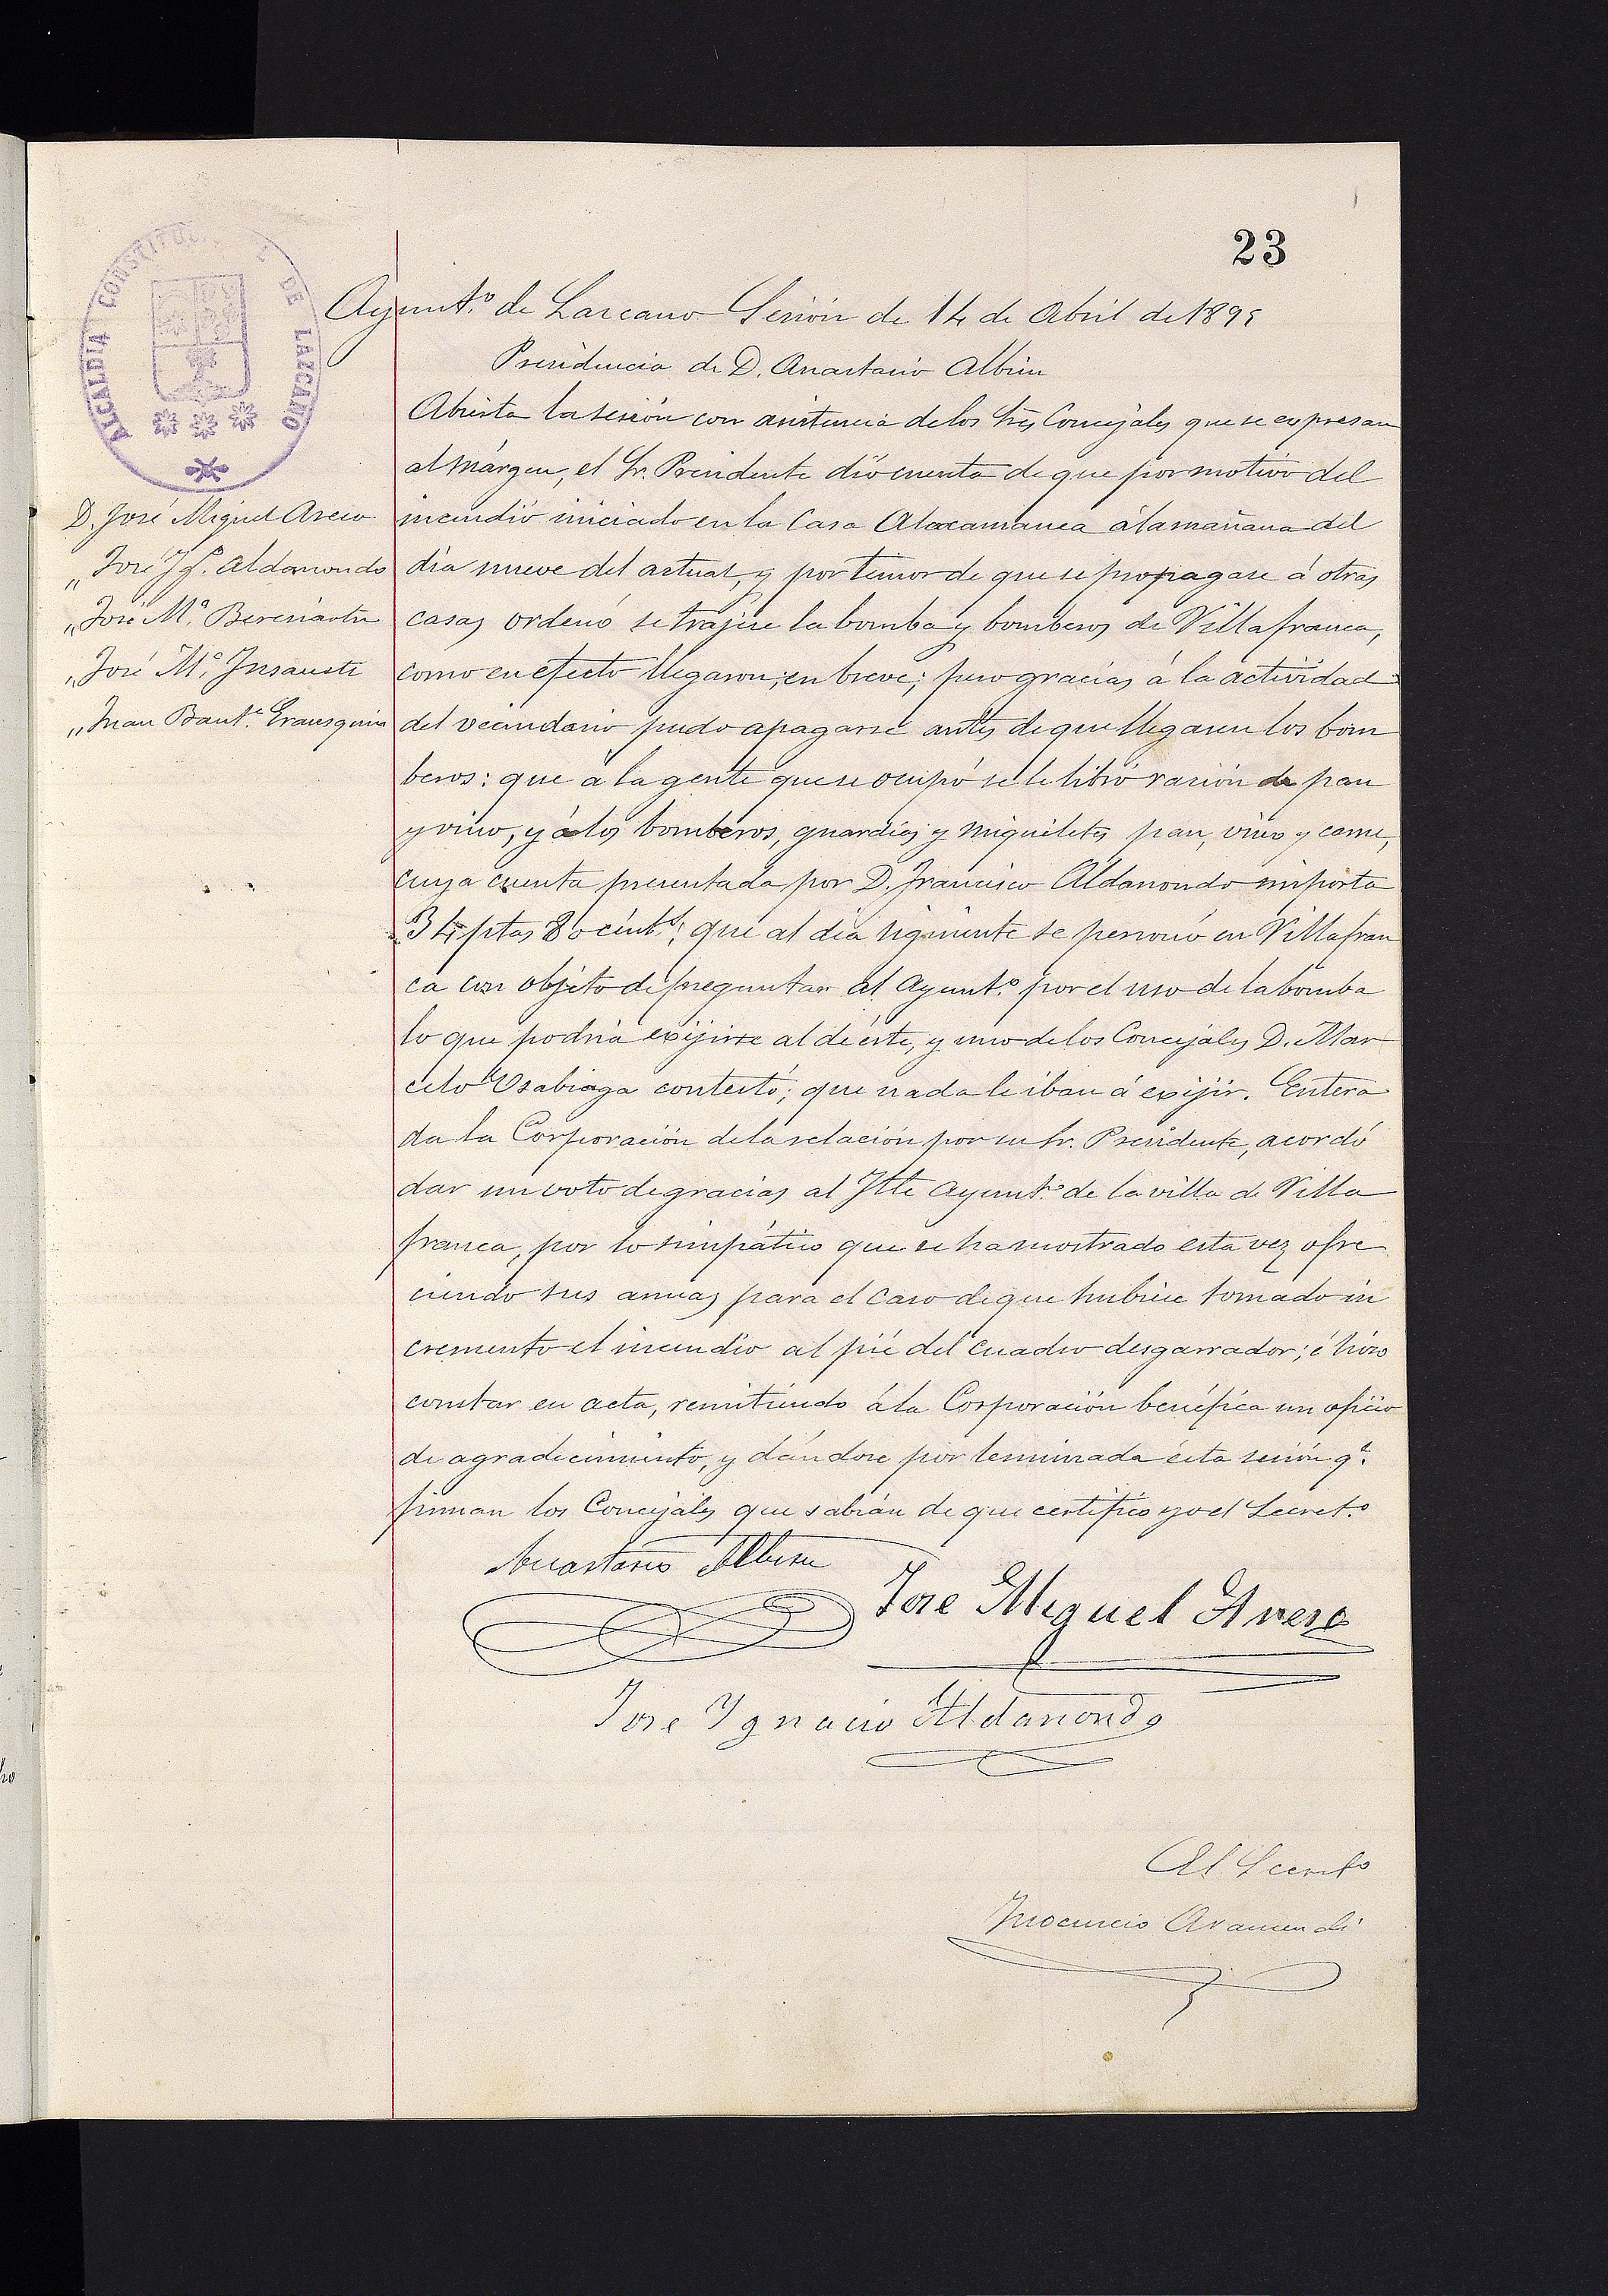 23
ALCALDIA CONSTITUCI DE LAZCANO
Ayunt.º de Lazcano Sesión de 14 de Abril de 1895
Presidencia de D. Anastasio Albisu
D. José Miguel Areso
„ José Ig. Aldanondo
„ José M.ª Beresiartu
„ José M.ª Insausti
„ Juan Baut.ª Erausquin
Abierta la sesión con asistencia de los Sres Concejales que se expresan
al márgen, el Sr. Presidente dió cuenta de que por motivo del
incendio iniciado en la Casa Atacamanea á la mañana del
día nueve del actual, y por temor de que se propagase á otras
casas ordenó se trajese la bomba y bomberos de Villafranca,
como en efecto llegaron, en breve; pero gracias á la actividad
del vecindario pudo apagarse antes de que llegasen los bom
beros: que á la gente que se ocupó se le libró ración de pan
y vino, y á los bomberos, guardias y miqueletes pan, vino y carne,
cuya cuenta presentada por D. Francisco Aldanondo importa
34 ptas 80 cént.s; que al día siguiente se personó en Villafran
ca con objeto de preguntar al Ayunt.º por el uso de la bomba
lo que podría exijirse al de éste, y uno de los Concejales D. Mar
celo Usabiaga contestó; que nada le iban á exijir. Entera
da la Corporación de la relación por su Sr. Presidente, acordó
dar un voto de gracias al Iltre Ayunt.º de la villa de Villa
franca, por lo simpático que se ha mostrado esta vez ofre
ciendo sus para el caso de que hubiese tomado in
cremento el incendio al pié del cuadro desgarrador; é hizo
constar en acta, remitiendo á la Corporación benéfica un oficio
de agradecimiento, y dándose por terminada ésta sesión q.e
firman los Concejales que sabían de que certifico yo el Secret.º
Anastasio Albisu
Jose Miguel Areso
Jose Ignacio Aldanondo
El Secret.º
Inocencio Aramendi